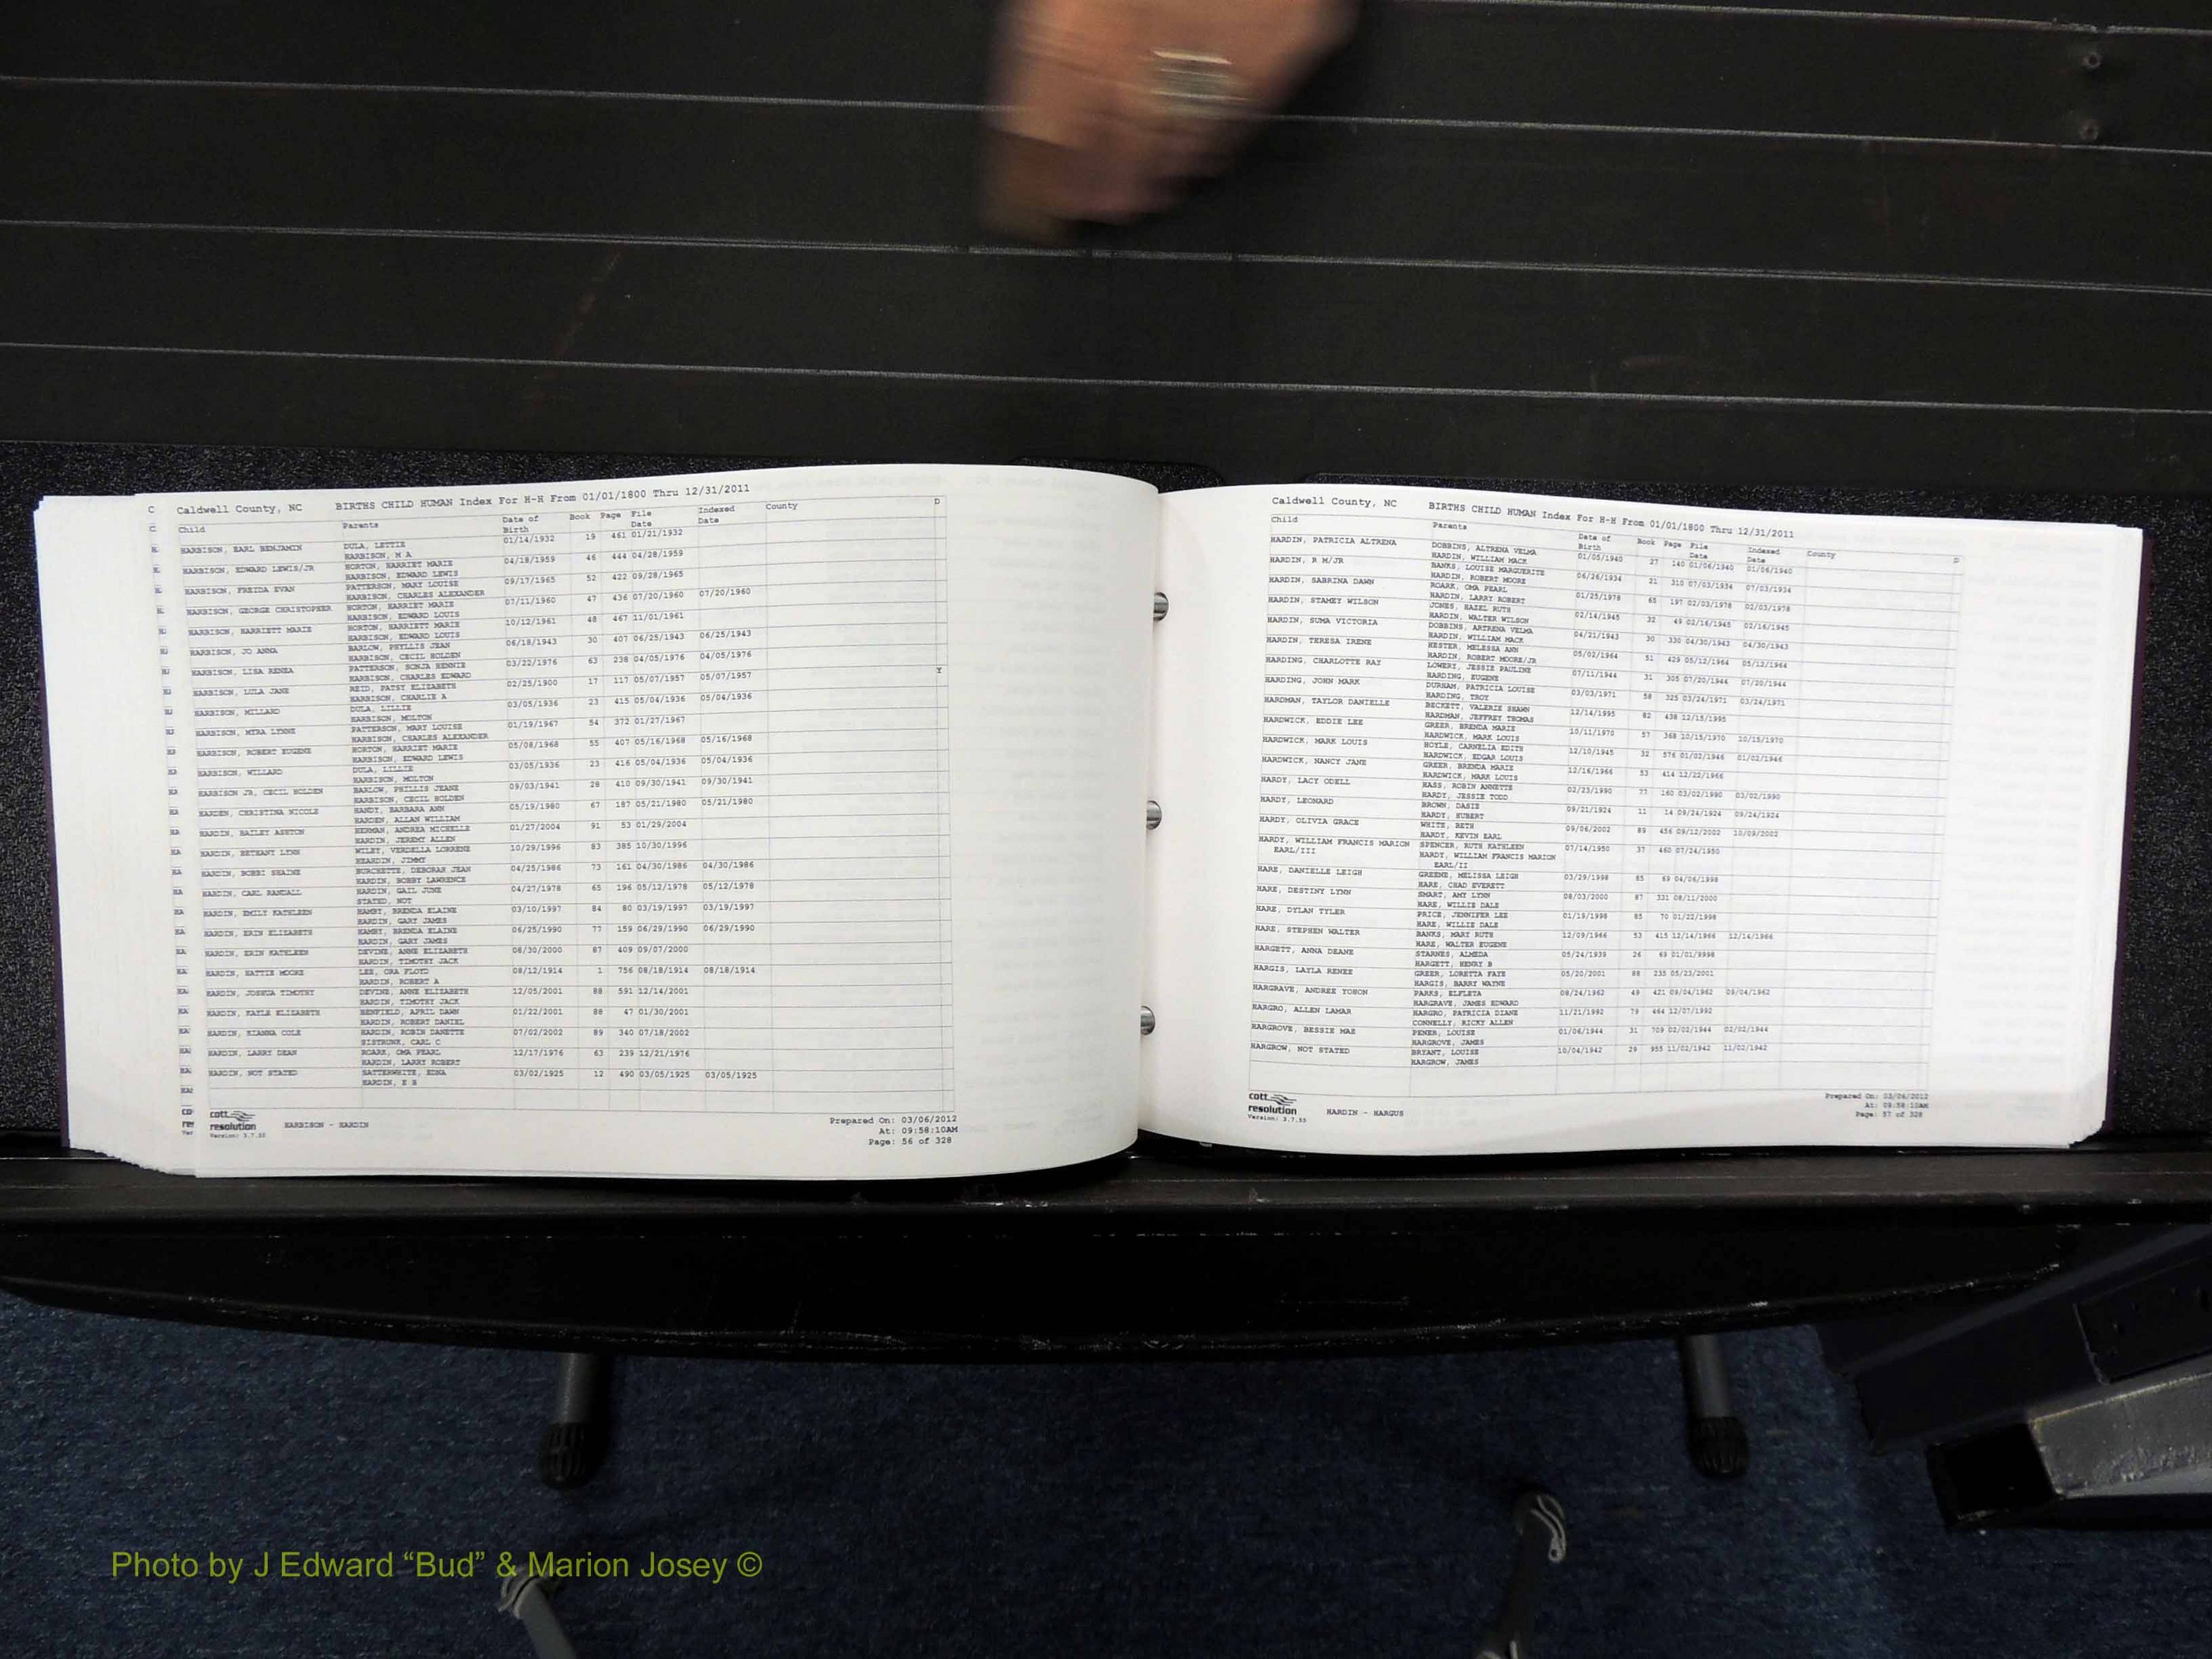 Caldwell County, NC BIRTHS CHILD HUMAN Index For H-H From 01/01/1800 Thru 12/31/2011
Child Parents Date of Birth Book Page File Date Indexed Date County D
HARBISON, EARL BENJAMIN DULA, LETTIE 01/14/1932 19 461 01/21/1932
HARBISON, M A
HARBISON, EDWARD LEWIS/JR HORTON, HARRIET MARIE 04/18/1959 46 444 04/28/1959
HARBISON, EDWARD LEWIS
HARBISON, FREIDA EVAN PATTERSON, MARY LOUISE 09/17/1965 52 422 09/28/1965
HARBISON, CHARLES ALEXANDER
HARBISON, GEORGE CHRISTOPHER HORTON, HARRIET MARIE 07/11/1960 47 436 07/20/1960 07/20/1960
HARBISON, EDWARD LOUIS
HARBISON, HARRIETT MARIE HORTON, HARRIETT MARIE 10/12/1961 48 467 11/01/1961
HARBISON, EDWARD LOUIS
HARBISON, JO ANNA BARLOW, PHYLLIS JEAN 06/18/1943 30 407 06/25/1943 06/25/1943
HARBISON, CECIL HOLDEN
HARBISON, LISA RENEA PATTERSON, SONJA RENNIE 03/22/1976 63 238 04/05/1976 04/05/1976
HARBISON, CHARLES EDWARD
HARBISON, LULA JANE REID, PATSY ELIZABETH 02/25/1900 17 117 05/07/1957 05/07/1957 Y
HARBISON, CHARLIE A
HARBISON, MILLARD DULA, LILLIE 03/05/1936 23 415 05/04/1936 05/04/1936
HARBISON, MOLTON
HARBISON, MYRA LYNNE PATTERSON, MARY LOUISE 01/19/1967 54 372 01/27/1967
HARBISON, CHARLES ALEXANDER
HARBISON, ROBERT EUGENE HORTON, HARRIET MARIE 05/08/1968 55 407 05/16/1968 05/16/1968
HARBISON, EDWARD LEWIS
HARBISON, WILLARD DULA, LILLIE 03/05/1936 23 416 05/04/1936 05/04/1936
HARBISON, MOLTON
HARBISON JR, CECIL HOLDEN BARLOW, PHILLIS JEANE 09/03/1941 28 410 09/30/1941 09/30/1941
HARBISON, CECIL HOLDEN
HARDEN, CHRISTINA NICOLE HANDY, BARBARA ANN 05/19/1980 67 187 05/21/1980 05/21/1980
HARDEN, ALLAN WILLIAM
HARDIN, BAILEY ASHTON HERMAN, ANDREA MICHELLE 01/27/2004 91 53 01/29/2004
HARDIN, JEREMY ALLEN
HARDIN, BETHANY LYNN WILEY, VERDELLA LORRENE 10/29/1996 83 385 10/30/1996
HEARDIN, JIMMY
HARDIN, BOBBI SHAINE BURCHETTE, DEBORAH JEAN 04/25/1986 73 161 04/30/1986 04/30/1986
HARDIN, BOBBY LAWRENCE
HARDIN, CARL RANDALL HARDIN, GAIL JUNE 04/27/1978 65 196 05/12/1978 05/12/1978
STATED, NOT
HARDIN, EMILY KATHLEEN HAMBY, BRENDA ELAINE 03/10/1997 84 80 03/19/1997 03/19/1997
HARDIN, GARY JAMES
HARDIN, ERIN ELIZABETH HAMBY, BRENDA ELAINE 06/25/1990 77 159 06/29/1990 06/29/1990
HARDIN, GARY JAMES
HARDIN, ERIN KATHLEEN DEVINE, ANNE ELIZABETH 08/30/2000 87 409 09/07/2000
HARDIN, TIMOTHY JACK
HARDIN, HATTIE MOORE LEE, ORA FLOYD 08/12/1914 1 756 08/18/1914 08/18/1914
HARDIN, ROBERT A
HARDIN, JOSHUA TIMOTHY DEVINE, ANNE ELIZABETH 12/05/2001 88 591 12/14/2001
HARDIN, TIMOTHY JACK
HARDIN, KAYLE ELIZABETH HENFIELD, APRIL DAWN 01/22/2001 88 47 01/30/2001
HARDIN, ROBERT DANIEL
HARDIN, KIANNA COLE HARDIN, ROBIN DANETTE 07/02/2002 89 340 07/18/2002
SISTRUNK, CARL C
HARDIN, LARRY DEAN ROARK, OMA PEARL 12/17/1976 63 239 12/21/1976
HARDIN, LARRY ROBERT
HARDIN, NOT STATED SATTERWHITE, EDNA 03/02/1925 12 490 03/05/1925 03/05/1925
HARDIN, E B
cott resolution Version: 3.7.55
HARBISON - HARDIN
Prepared On: 03/06/2012
At: 09:58:10AM
Page: 56 of 328
Caldwell County, NC BIRTHS CHILD HUMAN Index For H-H From 01/01/1800 Thru 12/31/2011
Child Parents Date of Birth Book Page File Date Indexed Date County D
HARDIN, PATRICIA ALTRENA DOBBINS, ALTRENA VELMA 01/05/1940 27 140 01/06/1940 01/06/1940
HARDIN, WILLIAM MACK
HARDIN, R M/JR BANKS, LOUISE MARGUERITE 06/26/1934 21 310 07/03/1934 07/03/1934
HARDIN, ROBERT MOORE
HARDIN, SABRINA DAWN ROARK, OMA PEARL 01/25/1978 65 197 02/03/1978 02/03/1978
HARDIN, LARRY ROBERT
HARDIN, STAMEY WILSON JONES, HAZEL RUTH 02/14/1945 32 49 02/16/1945 02/16/1945
HARDIN, WALTER WILSON
HARDIN, SUMA VICTORIA DOBBINS, ARTRENA VELMA 04/21/1943 30 330 04/30/1943 04/30/1943
HARDIN, WILLIAM MACK
HARDIN, TERESA IRENE HESTER, MELESSA ANN 05/02/1964 51 429 05/12/1964 05/12/1964
HARDIN, ROBERT MOORE/JR
HARDING, CHARLOTTE RAY LOWERY, JESSIE PAULINE 07/11/1944 31 305 07/20/1944 07/20/1944
HARDING, EUGENE
HARDING, JOHN MARK DURHAM, PATRICIA LOUISE 03/03/1971 58 325 03/24/1971 03/24/1971
HARDING, TROY
HARDMAN, TAYLOR DANIELLE BECKETT, VALERIE SHAWN 12/14/1995 82 438 12/15/1995
HARDMAN, JEFFREY THOMAS
HARDWICK, EDDIE LEE GREER, BRENDA MARIE 10/11/1970 57 368 10/15/1970 10/15/1970
HARDWICK, MARK LOUIS
HARDWICK, MARK LOUIS HOYLE, CARNELIA EDITH 12/10/1945 32 576 01/02/1946 01/02/1946
HARDWICK, EDGAR LOUIS
HARDWICK, NANCY JANE GREER, BRENDA MARIE 12/16/1966 53 414 12/22/1966
HARDWICK, MARK LOUIS
HARDY, LACY ODELL HASS, ROBIN ANNETTE 02/23/1990 77 160 03/02/1990 03/02/1990
HARDY, JESSIE TODD
HARDY, LEONARD BROWN, DASIE 09/21/1924 11 14 09/24/1924 09/24/1924
HARDY, HUBERT
HARDY, OLIVIA GRACE WHITE, BETH 09/06/2002 89 456 09/12/2002 10/09/2002
HARDY, KEVIN EARL
HARDY, WILLIAM FRANCIS MARION SPENCER, RUTH KATHLEEN 07/14/1950 37 460 07/24/1950
EARL/III HARDY, WILLIAM FRANCIS MARION
EARL/II
HARE, DANIELLE LEIGH GREENE, MELISSA LEIGH 03/29/1998 85 69 04/06/1998
HARE, CHAD EVERETT
HARE, DESTINY LYNN SMART, AMY LYNN 08/03/2000 87 331 08/11/2000
HARE, WILLIE DALE
HARE, DYLAN TYLER PRICE, JENNIFER LEE 01/19/1998 85 70 01/22/1998
HARE, WILLIE DALE
HARE, STEPHEN WALTER BANKS, MARY RUTH 12/09/1966 53 415 12/14/1966 12/14/1966
HARE, WALTER EUGENE
HARGETT, ANNA DEANE STARNES, ALMEDA 05/24/1939 26 69 01/01/9998
HARGETT, HENRY B
HARGIS, LAYLA RENEE GREER, LORETTA FAYE 05/20/2001 88 235 05/23/2001
HARGIS, BARRY WAYNE
HARGRAVE, ANDREE YOHON PARKS, ELFLETA 08/24/1962 49 421 09/04/1962 09/04/1962
HARGRAVE, JAMES EDWARD
HARGRO, ALLEN LAMAR HARGRO, PATRICIA DIANE 11/21/1992 79 464 12/07/1992
CONNELLY, RICKY ALLEN
HARGROVE, BESSIE MAE PENER, LOUISE 01/06/1944 31 709 02/02/1944 02/02/1944
HARGROVE, JAMES
HARGROW, NOT STATED BRYANT, LOUISE 10/04/1942 29 955 11/02/1942 11/02/1942
HARGROW, JAMES
cott resolution Version: 3.7.55
HARDIN - HARGUS
Prepared On: 03/06/2012
At: 09:58:10AM
Page: 57 of 328
Photo by J Edward “Bud” & Marion Josey ©